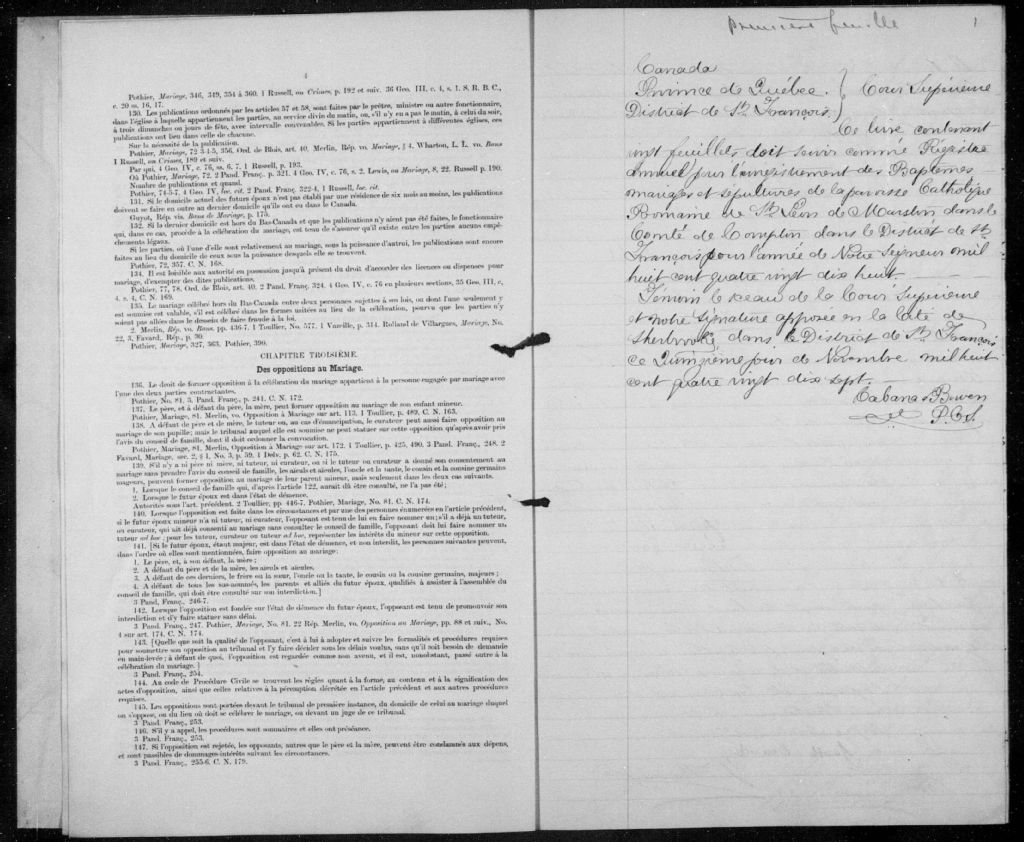 4
Pothier, Mariage, 346, 349, 354 à 360. 1 Russell, on Crimes, p. 192 et suiv. 36 Geo. III, c. 4, s. 1. S. R. B. C.,
c. 20 ss. 16, 17.
130. Les publications ordonnées par les articles 57 et 58, sont faites par le prêtre, ministre ou autre fonctionnaire,
dans l'église à laquelle appartiennent les parties, au service divin du matin, ou, s'il n'y en a pas le matin, à celui du soir,
à trois dimanches ou jours de fête, avec intervalle convenables. Si les parties appartiennent à différentes églises, ces
publications ont lieu dans celle de chacune.
Sur la nécessité de la publication.
Pothier, Mariage, 72 3-4-5, 356. Ord. de Blois, art. 40. Merlin, Rép. vo. Mariage, § 4. Wharton, L. L. vo. Bans
1 Russell, on Crimes, 189 et suiv.
Par qui, 4 Geo. IV, c. 76, ss. 6, 7. 1 Russell, p. 193.
Où Pothier, Mariage, 72. 2 Pand. Franç. p. 321. 4 Geo. IV, c. 76, s. 2. Lewis, on Mariage, 8, 22. Russell p. 190.
Nombre de publications et quand.
Pothier, 74-5-7. 4 Geo. IV, loc. cit. 2 Pand. Franç. 322-4. 1 Russell, loc. cit.
131. Si le domicile actuel des futurs époux n'est pas établi par une résidence de six mois au moins, les publications
doivent se faire en outre au dernier domicile qu'ils ont eu dans le Canada.
Guyot, Rép. vis. Bans de Mariage, p. 175.
132. Si le dernier domicile est hors du Bas-Canada et que les publications n'y aient pas été faites, le fonctionnaire
qui, dans ce cas, procède à la célébration du mariage, est tenu de s'assurer qu'il existe entre les parties aucuns empê-
chements légaux.
Si les parties, ou l'une d'elle sont relativement au mariage, sous la puissance d'autrui, les publications sont encore
faites au lieu du domicile de ceux sous la puissance desquels elle se trouvent.
Pothier, 72, 357. C. N. 168.
134. Il est loisible aux autorité en possession jusqu'à présent du droit d'accorder des licences ou dispenses pour
mariage, d'exempter des dites publications.
Pothier, 77, 78. Ord. de Blois, art. 40. 2 Pand. Franç. 324. 4 Geo. IV, c. 76 en plusieurs sections, 35 Geo. III, c.
4, s. 4, C. N. 169.
135. Le mariage célébré hors du Bas-Canada entre deux personnes sujettes à ses lois, ou dont l'une seulement y
est soumise est valable, s'il est célébré dans les formes usitées au lieu de la célébration, pourvu que les parties n'y
soient pas allées dans le dessein de faire fraude à la loi.
2. Merlin, Rép. vo. Bans, pp. 436-7. 1 Toullier, No. 577. 1 Vazeille, p. 314. Rolland de Villargues, Mariage, No.
22, 3. Favard, Rép., p. 39.
Pothier, Mariage, 327, 363. Pothier, 390.
CHAPITRE TROISIÈME.
Des oppositions au Mariage.
136. Le droit de former opposition à la célébration du mariage appartient à la personne engagée par mariage avec
l'une des deux parties contractantes.
Pothier, No. 81. 3, Pand. Franç., p. 241. C. N. 172.
137. Le père, et à défaut du père, la mère, peut former opposition au mariage de son enfant mineur.
Pothier, Mariage, 81. Merlin, vo. Opposition à Mariage sur art. 113, 1 Toullier, p. 489. C. N. 163.
138. A défaut de père et de mère, le tuteur ou, au cas d'émancipation, le curateur peut aussi faire opposition au
mariage de son pupille; mais le tribunal auquel elle est soumise ne peut statuer sur cette opposition qu'après avoir pris
l'avis du conseil de famille, dont il doit ordonner la convocation.
Pothier, Mariage, 81. Merlin, Opposition à Mariage sur art. 172. 1 Toullier, p. 425, 490. 3 Pand. Franç., 248. 2
Favard, Mariage, sec. 2, § 1, No. 3, p. 59. 1 Delv. p. 62. C. N. 175.
139. S'il n'y a ni père ni mère, ni tuteur, ni curateur, ou si le tuteur ou curateur a donné son consentement au
mariage sans prendre l'avis du conseil de famille, les aïeuls et aïeules, l'oncle et la tante, le cousin et la cousine germains
majeurs, peuvent former opposition au mariage de leur parent mineur, mais seulement dans les deux cas suivants.
1. Lorsque le conseil de famille qui, d'après l'article 122, aurait dû être consulté, ne l'a pas été;
2. Lorsque le futur époux est dans l'état de démence.
Autorités sous l'art. précédent. 2 Toullier, pp. 446-7. Pothier, Mariage, No. 81. C. N. 174.
140. Lorsque l'opposition est faite dans les circonstances et par une des personnes énumérées en l'article précédent,
si le futur époux mineur n'a ni tuteur, ni curateur, l'opposant est tenu de lui en faire nommer un; s'il a déjà un tuteur,
ou curateur, qui ait déjà consenti au mariage sans consulter le conseil de famille, l'opposant doit lui faire nommer un
tuteur ad hoc; pour les tuteur, curateur ou tuteur ad hoc, représenter les intérêts du mineur sur cette opposition.
141. [Si le futur époux, étant majeur, est dans l'état de démence, et non interdit, les personnes suivantes peuvent,
dans l'ordre où elles sont mentionnées, faire opposition au mariage:
1. Le père, et, à son défaut, la mère;
2. A défaut du père et de la mère, les aïeuls et aïeules.
3. A défaut de ces derniers, le frère ou la sœur, l'oncle ou la tante, le cousin ou la cousine germains, majeurs;
4. A défaut de tous les sus-nommés, les parents et alliés du futur époux, qualifiés à assister à l'assemblée du
conseil de famille, qui doit être consulté sur son interdiction.]
3 Pand. Franç., 246-7.
142. Lorsque l'opposition est fondée sur l'état de démence du futur époux, l'opposant est tenu de promouvoir son
interdiction et d'y faire statuer sans délai.
3 Pand. Franç., 247. Pothier, Mariage, No. 81. 22 Rép. Merlin, vo. Opposition au Mariage, pp. 88 et suiv., No.
4 sur art. 174. C. N. 174.
143. [Quelle que soit la qualité de l'opposant, c'est à lui à adopter et suivre les formalités et procédures requises
pour soumettre son opposition au tribunal et l'y faire décider sous les délais voulus, sans qu'il soit besoin de demande
en main-levée; à défaut de quoi, l'opposition est regardée comme non avenu, et il est, nonobstant, passé outre à la
célébration du mariage.]
3 Pand. Franç., 254.
144. Au code de Procédure Civile se trouvent les règles quant à la forme, au contenu et à la signification des
actes d'opposition, ainsi que celles relatives à la péremption décrétée en l'article précédent et aux autres procédures
requises.
145. Les oppositions sont portées devant le tribunal de première instance, du domicile de celui au mariage duquel
on s'oppose, ou du lieu où doit se célébrer le mariage, ou devant un juge de ce tribunal.
3 Pand. Franç., 253.
146. S'il y a appel, les procédures sont sommaires et elles ont préséance.
3 Pand. Franç., 253.
147. Si l'opposition est rejetée, les opposants, autres que le père et la mère, peuvent être condamnés aux dépens,
et sont passibles de dommages-intérêts suivant les circonstances.
3 Pand. Franç., 255-6. C. N. 179.
première feuille 1
Canada
Province de Québec. } Cour Supérieure
District de St. François. }
Ce livre contenant
vingt feuillets doit servir comme Régistre
annuel pour l'enregistrement des Baptêmes
mariages et sépultures de la paroisse Catholique
Romaine de St. Léon de Marston dans le
Comté de Compton dans le District de St.
François pour l'année de Notre Seigneur mil
huit cent quatre vingt dix huit.
Témoin le sceau de la Cour Supérieure
et notre signature apposée en la Cité de
Sherbrooke dans le District de St. François
ce Quinzième jour de Novembre mil huit
cent quatre vingt dix sept.
Cabana & Bowen
P.C.S.